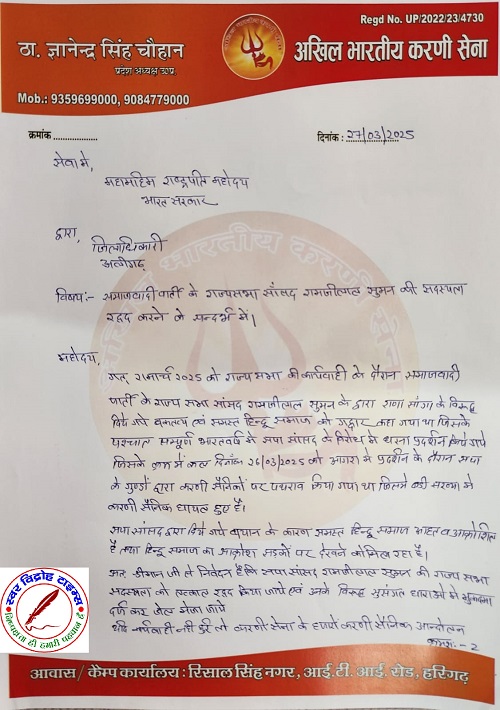 Regd No. UP/2022/23/4730
ठा. ज्ञानेन्द्र सिंह चौहान
प्रदेश अध्यक्ष उ०प्र०
अखिल भारतीय करणी सेना
Mob.: 9359699000, 9084779000
क्रमांक ....................
दिनांक : 27/03/2025
सेवा मे,
महामहिम राष्ट्रपति महोदय
भारत सरकार
द्वारा,
जिलाधिकारी
अलीगढ़
विषय:- समाजवादी पार्टी के राज्यसभा सांसद रामजीलाल सुमन की सदस्यता
रद्द करने के सन्दर्भ में।
महोदय,
गत् मार्च 2025 को राज्य सभा की कार्यवाही के दौरान समाजवादी
पार्टी के राज्य सभा सांसद रामजीलाल सुमन के द्वारा राणा सांगा के विरूद्ध
दिये गये वक्तव्य एवं समस्त हिन्दू समाज को गद्दार कहा गया था जिसके
पश्चात सम्पूर्ण भारतवर्ष में सपा सांसद के विरोध में धरना प्रदर्शन किये गये
जिसके क्रम में कल दिनांक 26/03/2025 को आगरा मे प्रदर्शन के दौरान सपा
के गुण्डों द्वारा करणी सैनिकों पर पथराव किया गया था जिसमे बडी संख्या मे
करणी सैनिक घायल हुए है।
सपा सांसद द्वारा दिये गये बयान के कारण समस्त हिन्दू समाज आहत व आक्रोशित
है तथा हिन्दू समाज का आक्रोश सडको पर देखने को मिल रहा है।
अतः श्रीमान जी से निवेदन है कि सपा सांसद रामजीलाल सुमन की राज्य सभा
सदस्यता को तत्काल रद्द किया जाये एवं उनके विरूद्ध सुसंगत धाराओं मे मुकदमा
दर्ज कर जेल भेजा जाये
यदि कार्यवाही नही हुई तो करणी सेना के करणी सैनिक आन्दोलन
क्रमश:- 2
स्वर विद्रोह टाइम्स
निष्पक्षता ही हमारी पहचान है
आवास/ कैम्प कार्यालय : रिसाल सिंह नगर, आई.टी. आई. रोड, हरिगढ़